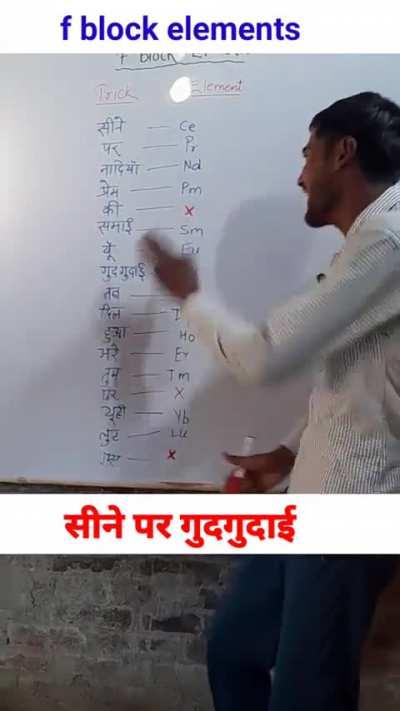 f block elements
f Block
Trick Element
सीने — Ce
पर — Pr
नादियाँ — Nd
प्रेम — Pm
की — x
समाई — Sm
यू — Eu
गुदगुदाई
तब —
दिल —
हुआ — Ho
मेरे — Er
तुम — Tm
पर — X
यूही — Yb
लुट — Lu
गए — x
सीने पर गुदगुदाई